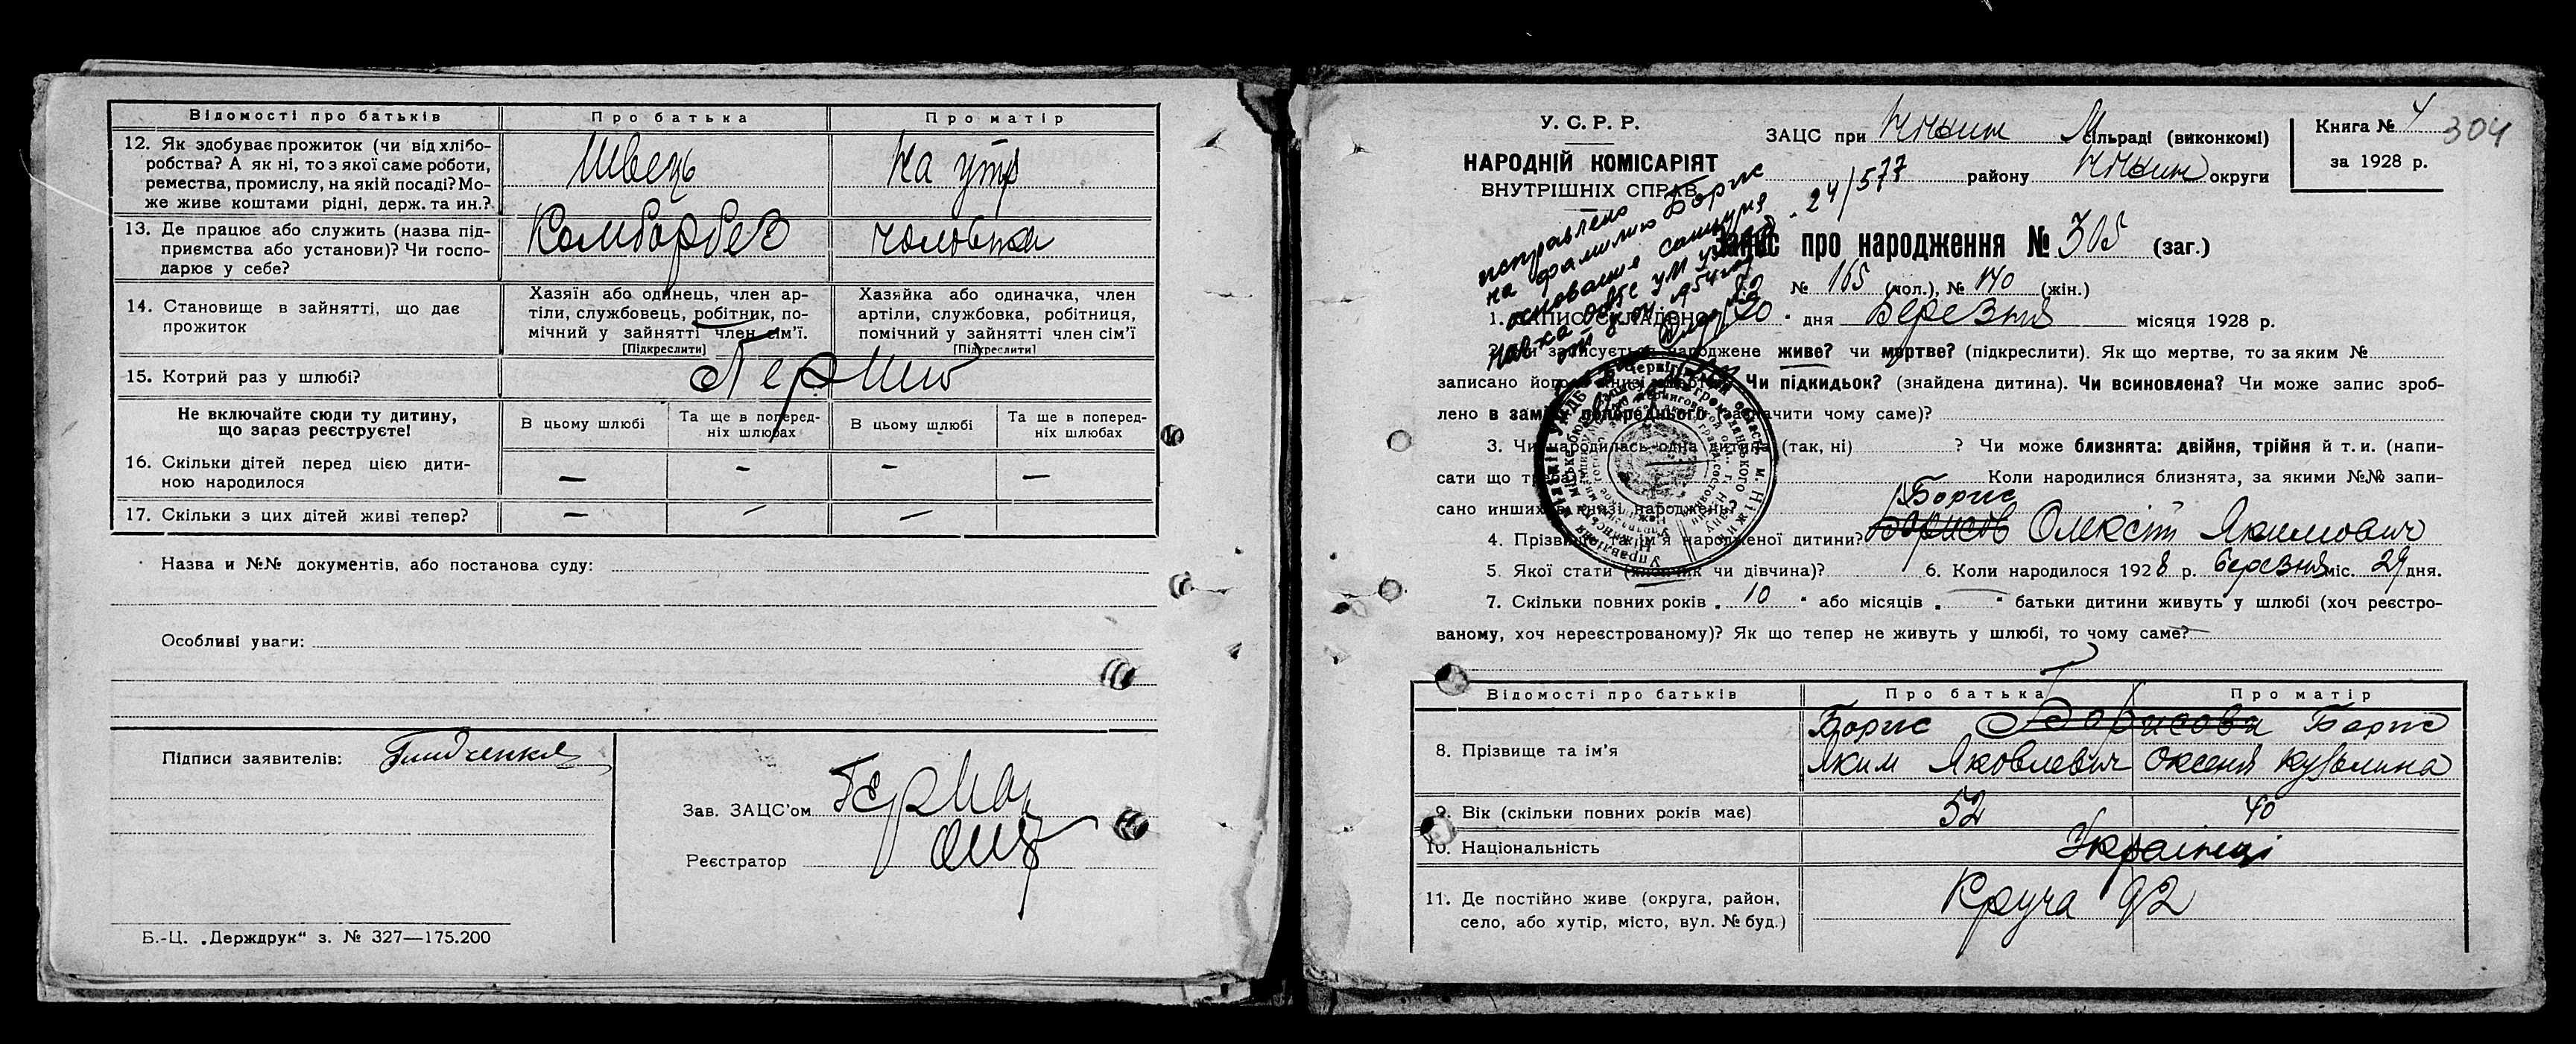 Відомості про батьків
Про батька
Про матір
12. Як здобуває прожиток (чи від хлібо-
робства? А як ні, то з якої саме роботи,
ремества, промислу, на якій посаді? Мо-
же живе коштами рідні, держ. та ин.?
Швець
На утр
13. Де працює або служить (назва під-
приємства або установи)? Чи госпо-
дарює у себе?
чоловіка
14. Становище в зайнятті, що дає
прожиток
Хазяїн або одинець, член ар-
тілі, службовець, робітник, по-
мічний у зайнятті член сім'ї.
[Підкреслити]
Хазяйка або одиначка, член
артілі, службовка, робітниця,
помічний у зайнятті член сім'ї
[Підкреслити]
15. Котрий раз у шлюбі?
Не включайте сюди ту дитину,
що зараз реєструєте!
В цьому шлюбі
Та ще в поперед-
ніх шлюбах
В цьому шлюбі
Та ще в поперед-
ніх шлюбах
16. Скільки дітей перед цією дити-
ною народилося
— — — —
17. Скільки з цих дітей живі тепер?
— — —
Назва и №№ документів, або постанова суду:
Особливі уваги:
Підписи заявителів:
Зав. ЗАЦС'ом
Реєстратор
Б.-Ц. „Держдрук“ з. № 327—175.200
У. С. Р. Р.
НАРОДНІЙ КОМІСАРІЯТ
ВНУТРІШНІХ СПРАВ
ЗАЦС при Ніжин М сільраді (виконкомі)
24/577 району Ніжин округи
Книга № 4
за 1928 р.
304
исправлено
на фамилию Борис
Запис про народження № 305 (заг.)
№ 165 (чол.), № 140 (жін.)
1. ЗАПИС СКЛАДЕНО 30 дня Березня місяця 1928 р.
2. Чи записується народжене живе? чи мертве? (підкреслити). Як що мертве, то за яким №
записано його в книзі Чи підкидьок? (знайдена дитина). Чи всиновлена? Чи може запис зроб-
лено в замін попереднього (зазначити чому саме)?
3. Чи народилась одна дитина (так, ні) ? Чи може близнята: двійня, трійня й т. и. (напи-
сати що треба) Коли народилися близнята, за якими №№ запи-
сано инших в книзі народжень?
Борис
4. Прізвище та ім'я народженої дитини? Борисов Олексій Якимович
5. Якої стати (хлопчик чи дівчина)? 6. Коли народилося 1928 р. березня міс. 29 дня.
7. Скільки повних років „ 10 “ або місяців „ “ батьки дитини живуть у шлюбі (хоч реєстро-
ваному, хоч нереєстрованому)? Як що тепер не живуть у шлюбі, то чому саме? —
Відомості про батьків
Про батька
Про матір
8. Прізвище та ім'я
Борис Борисови Борис
Яким Яковлевич Оксенія Кузьмина
9. Вік (скільки повних років має)
52
40
10. Національність
Українці
11. Де постійно живе (округа, район,
село, або хутір, місто, вул. № буд.)
Круча 92